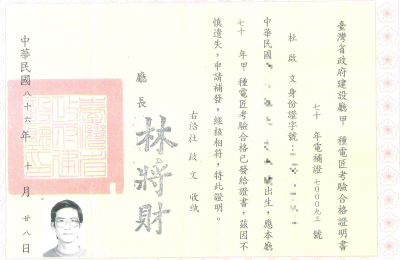 臺灣省政府建設廳甲種電匠考驗合格證明書
七十年電補證七000九三號
杜啟文身份證字號：
中華民國 出生，應本廳
七十年甲種電匠考驗合格已發給證書，茲因不
慎遺失，申請補發，經核相符，特此證明。
右給杜啟文收執
廳長 林將財
中華民國八十六年十月廿八日